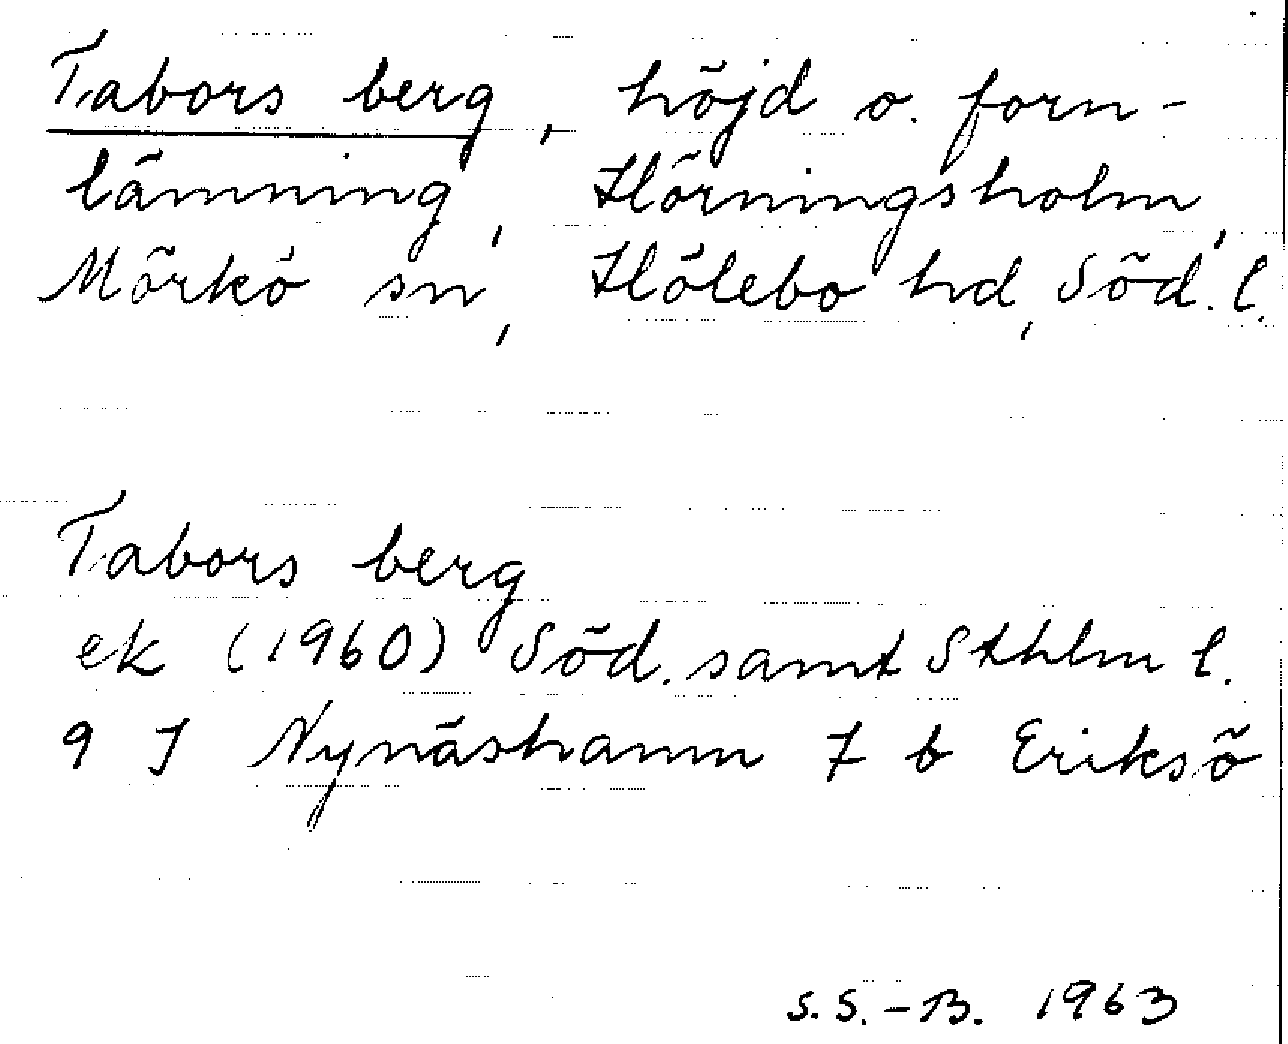 Tabors berg, höjd o. forn-
lämning, Hörningsholm,
Mörkö sn, Hölebo hd, Söd. l.
Tabors berg
ek (1960) Söd. samt Sthlm l.
9 J Nynäshamn 7 b Eriksö
S.S.-B. 1963